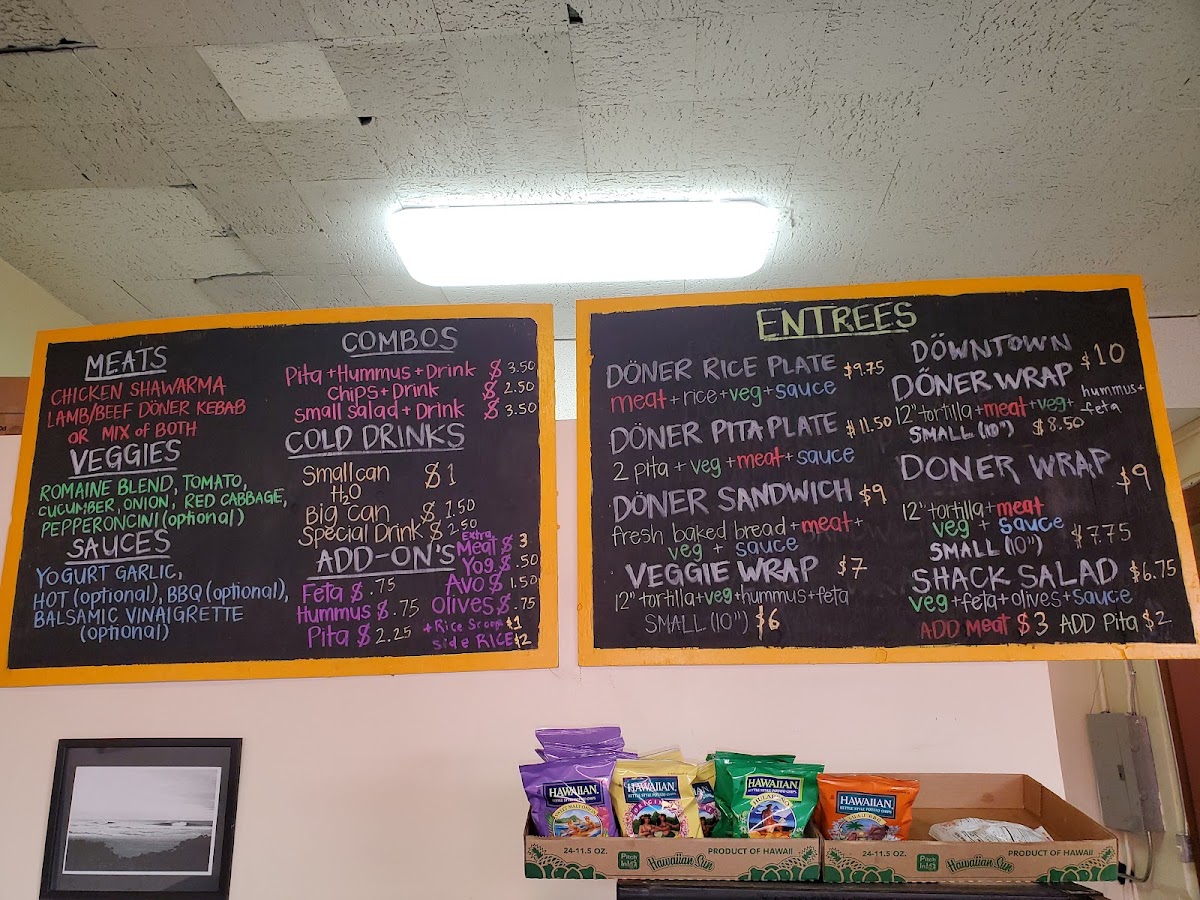 MEATS
CHICKEN SHAWARMA
LAMB/BEEF DÖNER KEBAB
OR MIX of BOTH
VEGGIES
ROMAINE BLEND, TOMATO,
CUCUMBER, ONION, RED CABBAGE,
PEPPERONCINI (optional)
SAUCES
YOGURT GARLIC,
HOT (optional), BBQ (optional),
BALSAMIC VINAIGRETTE
(optional)
COMBOS
Pita + Hummus + Drink $ 3.50
Chips + Drink $ 2.50
small salad + Drink $ 3.50
COLD DRINKS
Small can $ 1
H2O
Big Can $ 1.50
Special Drink $ 2.50
ADD-ON'S
Feta $ .75
Hummus $ .75
Pita $ 2.25
Extra
Meat $ 3
Yog $ .50
Avo $ 1.50
Olives $ .75
+ Rice Scoop $1
side RICE $2
ENTREES
DÖNER RICE PLATE $9.75
meat + rice + veg + sauce
DÖNER PITA PLATE $11.50
2 pita + veg + meat + sauce
DÖNER SANDWICH $9
fresh baked bread + meat +
veg + sauce
VEGGIE WRAP $7
12" tortilla + veg + hummus + feta
SMALL (10") $6
DÖWNTOWN
DÖNER WRAP $10
12" tortilla + meat + veg + hummus +
feta
SMALL (10") $8.50
DONER WRAP $9
12" tortilla + meat
veg + sauce
SMALL (10") $7.75
SHACK SALAD $6.75
veg + feta + olives + sauce
ADD Meat $3 ADD Pita $2
HAWAIIAN
HAWAIIAN
HAWAIIAN
HAWAIIAN
KETTLE STYLE POTATO CHIPS
24-11.5 OZ. Hawaiian Sun PRODUCT OF HAWAII
24-11.5 OZ. Hawaiian Sun PRODUCT OF HAWAII